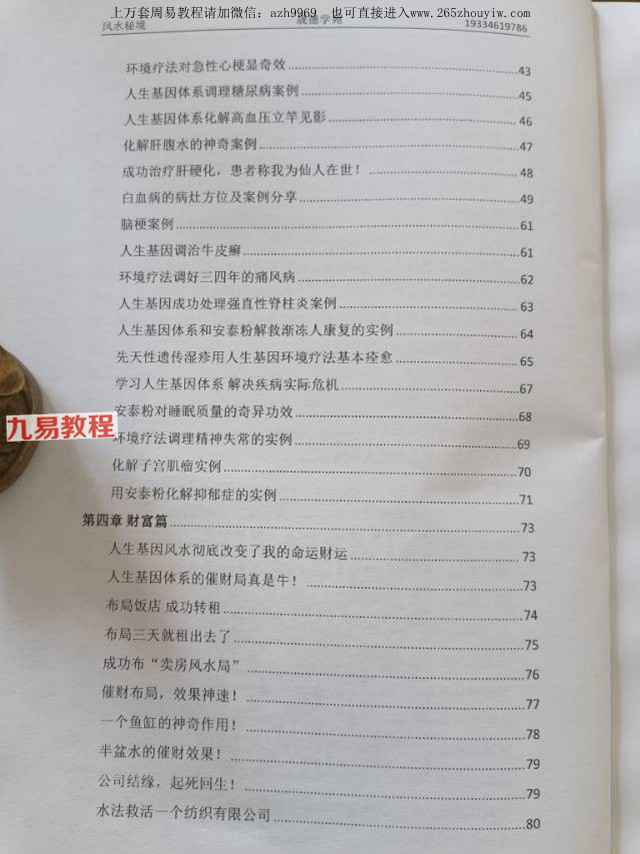 上万套周易教程请加微信：azh9969，也可直接进入www.265zhouyiw.com
风水秘境 晟德学苑 19334619786
环境疗法对急性心梗显奇效 43
人生基因体系调理糖尿病案例 45
人生基因体系化解高血压立竿见影 46
化解肝腹水的神奇案例 47
成功治疗肝硬化，患者称我为仙人在世！ 48
白血病的病灶方位及案例分享 49
脑梗案例 61
人生基因调治牛皮癣 61
环境疗法调好三四年的痛风病 62
人生基因成功处理强直性脊柱炎案例 63
人生基因体系和安泰粉解救渐冻人康复的实例 64
先天性遗传湿疹用人生基因环境疗法基本痊愈 65
学习人生基因体系 解决疾病实际危机 67
安泰粉对睡眠质量的奇异功效 68
九易教程
环境疗法调理精神失常的实例 69
化解子宫肌瘤实例 70
用安泰粉化解抑郁症的实例 71
第四章 财富篇 73
人生基因风水彻底改变了我的命运财运 73
人生基因体系的催财局真是牛！ 73
布局饭店 成功转租 74
布局三天就租出去了 75
成功布“卖房风水局” 76
催财布局，效果神速！ 77
一个鱼缸的神奇作用！ 78
半盆水的催财效果！ 79
公司结缘，起死回生！ 79
水法救活一个纺织有限公司 80